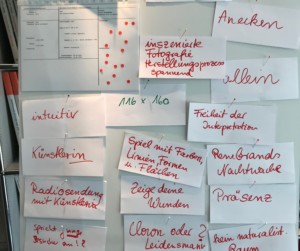 Anecken
inszenierte
Fotografie
Herstellungsprozess
spannend
allein
intuitiv
116 x 160
Freiheit der
Interpretation
Künstlerin
Spiel mit Farben,
Linien Formen
u. Flächen
Rembrands
Nachtwache
Radiosendung
mit Künstlerin
Zeige deine
Wunden
Präsenz
Clown oder ?
kein naturalist.
Raum